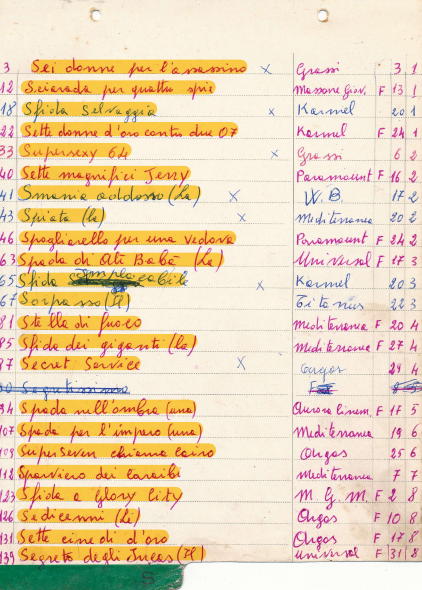 3 Sei donne per l'assassino x Grassi 3 1
12 Sciarada per quattro spie Massone Giov. F 13 1
18 Sfida Selvaggia x Karmel 20 1
22 Sette donne d'oro contro due 07 Karmel F 24 1
33 Supersexy 64 x Grassi 6 2
40 Sette magnifici Jerry Paramount F 16 2
41 Smania addosso (La) x W. B. 17 2
43 Spiata (la) x Mediterranea 20 2
46 Spogliarello per una vedova Paramount F 24 2
63 Spada di Alì Babà (La) Universal F 17 3
65 Sfida implacabile x Karmel 20 3
67 Sorpasso (Il) Titanus 22 3
81 Stella di fuoco Mediterranea F 20 4
85 Sfida dei giganti (la) Mediterranea F 27 4
87 Secret Service x 29 4
90
94 Spada nell'ombra (una) Aurora Cinem. F 17 5
107 Spada per l'impero (una) Mediterranea 19 6
109 Superseven chiama Cairo Orgos 25 6
112 Sparviero dei Caraibi Mediterranea 7 7
123 Sfida a Glory City M. G. M. F 2 8
126 Sedicenni (Le) Orgos F 10 8
131 Sette cine di d'oro Orgos F 17 8
139 Segreto degli Incas (Il) Universal F 31 8
S